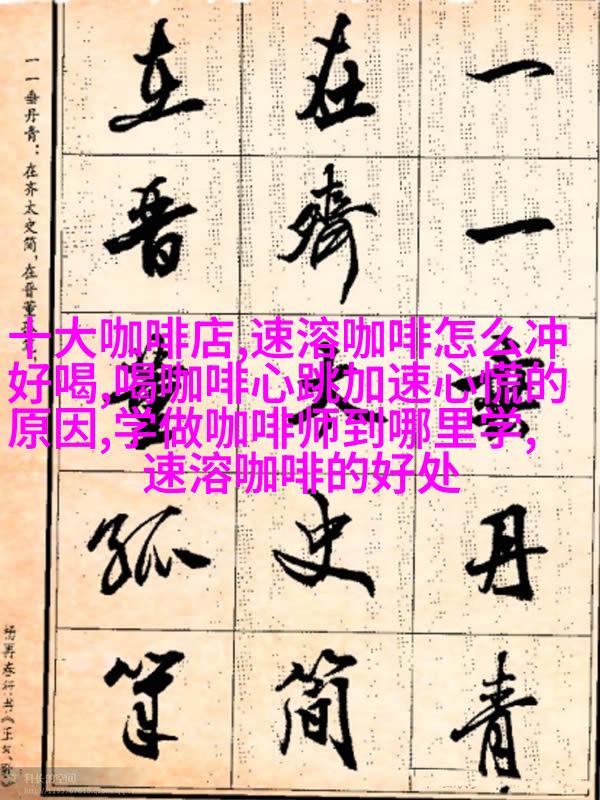 十大咖啡店,速溶咖啡怎么冲
好喝,喝咖啡心跳加速心慌的
原因,学做咖啡师到哪里学,
速溶咖啡的好处
一一垂丹青
在齊太史簡
在晋董狐筆
一一垂丹青:在齐太史简,在晋董
杨再春行书《正气歌
科长的空间